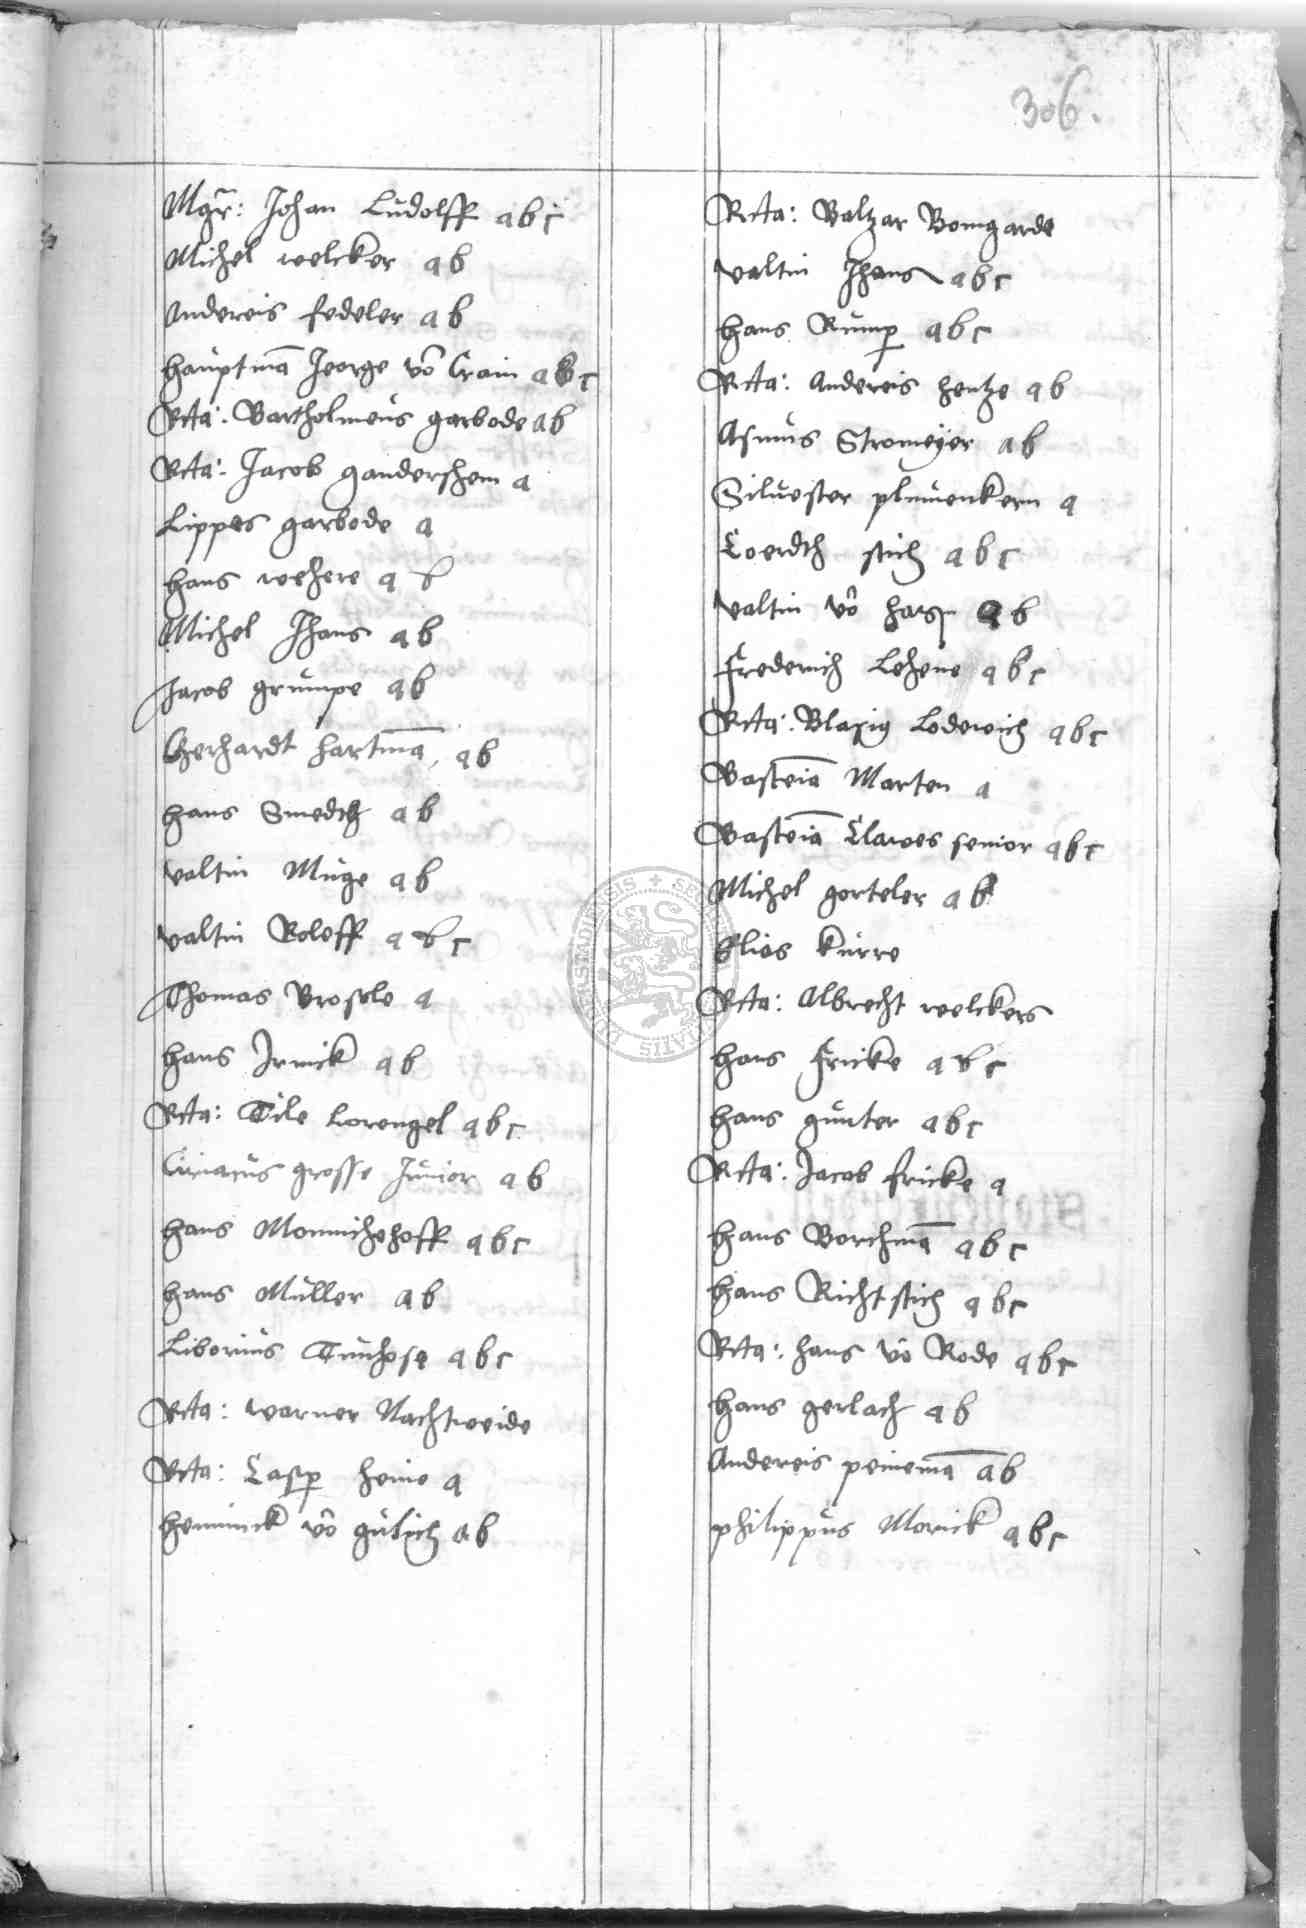 306.
Mgr: Johan Ludolff abc
Michel welcker ab
Andereis fedeler ab
Hauptmā Jeorge vō Crain abc
Rcta: Bartholmeus garbode ab
Rcta: Jacob gandershem a
Lippes garbode a
Hans wehere a b
Michel Jhans ab
Jacob grumpe ab
Gherhardt Hartmā ab
Hans Smedth ab
Valtin Muge ab
Valtin Roleff a b c
Thomas a
Hans Jrrick ab
Rcta: Tile Lorengel abc
Ciriacus grosse Junior ab
Hans Monnichehoff abc
Hans Muller ab
Liborius Tunhose abc
Rcta: Warner Nachtweide
Rcta: Casp Heine a
Henninck vō gulich ab
Rcta: Baltzar Bomgarde
Valtin Jhans abc
Hans Rump abc
Rcta: Andereis Hentze ab
Asmus Stromeyer ab
Siluester a
Coerdth stich abc
Valtin vō ab
Frederich Lehene abc
Rcta: Blasig Lodewich abc
Basteiā Marten a
Basteiā Clawes senior abc
Michel gorteler ab
Elias Kurre
Rcta: Albrecht welckers
Hans Fricke abc
Hans gunter abc
Rcta: Jacob fricke a
Hans Borchmā abc
Hans Richtstich abc
Rcta: Hans vō Rode abc
Hans gerlach ab
Andereis peinemā ab
Philippus Morick abc